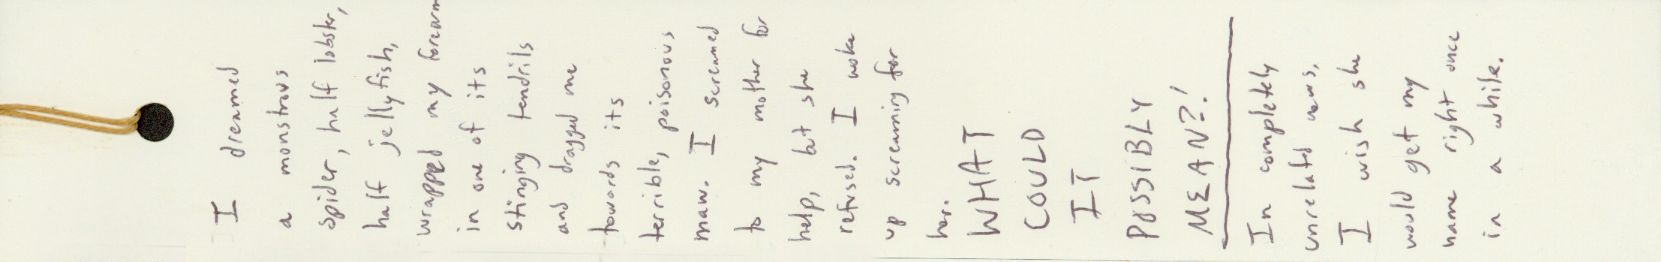 I dreamed
a monstrous
spider, half lobster,
half jellyfish,
wrapped my forearm
in one of its
stinging tendrils
and dragged me
towards its
terrible, poisonous
maw. I screamed
to my mother for
help, but she
refused. I woke
up screaming for
her.
WHAT
COULD
IT
POSSIBLY
MEAN?!
In completely
unrelated news,
I wish she
would get my
name right once
in a while.